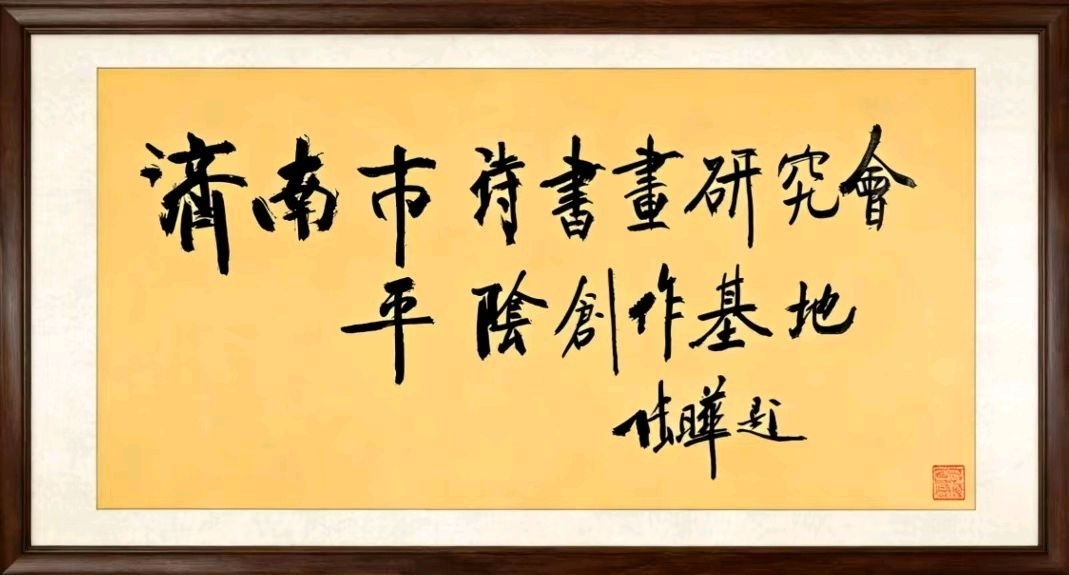 濟南市詩書畫研究會
平陰創作基地
曄題